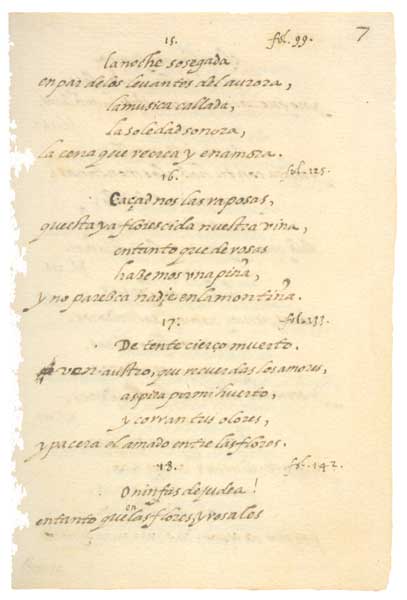 7
15. fol. 99.
la noche sosegada
en par de los levantes del aurora,
la musica callada,
la soledad sonora,
la cena que recrea y enamora.
16. fol. 125.
Caçad nos las raposas,
questa ya florescida nuestra viña,
entanto que de rosas
hazemos vna piña,
y no paresca nadie en la montiña.
17. fol. 133.
De tente cierço muerto.
ven austro, que recuerdas los amores,
aspira por mi huerto,
y corran tus olores,
y pacera el amado entre las flores.
18. fol. 142.
O ninfas de judea!
entanto que en las flores y rosales